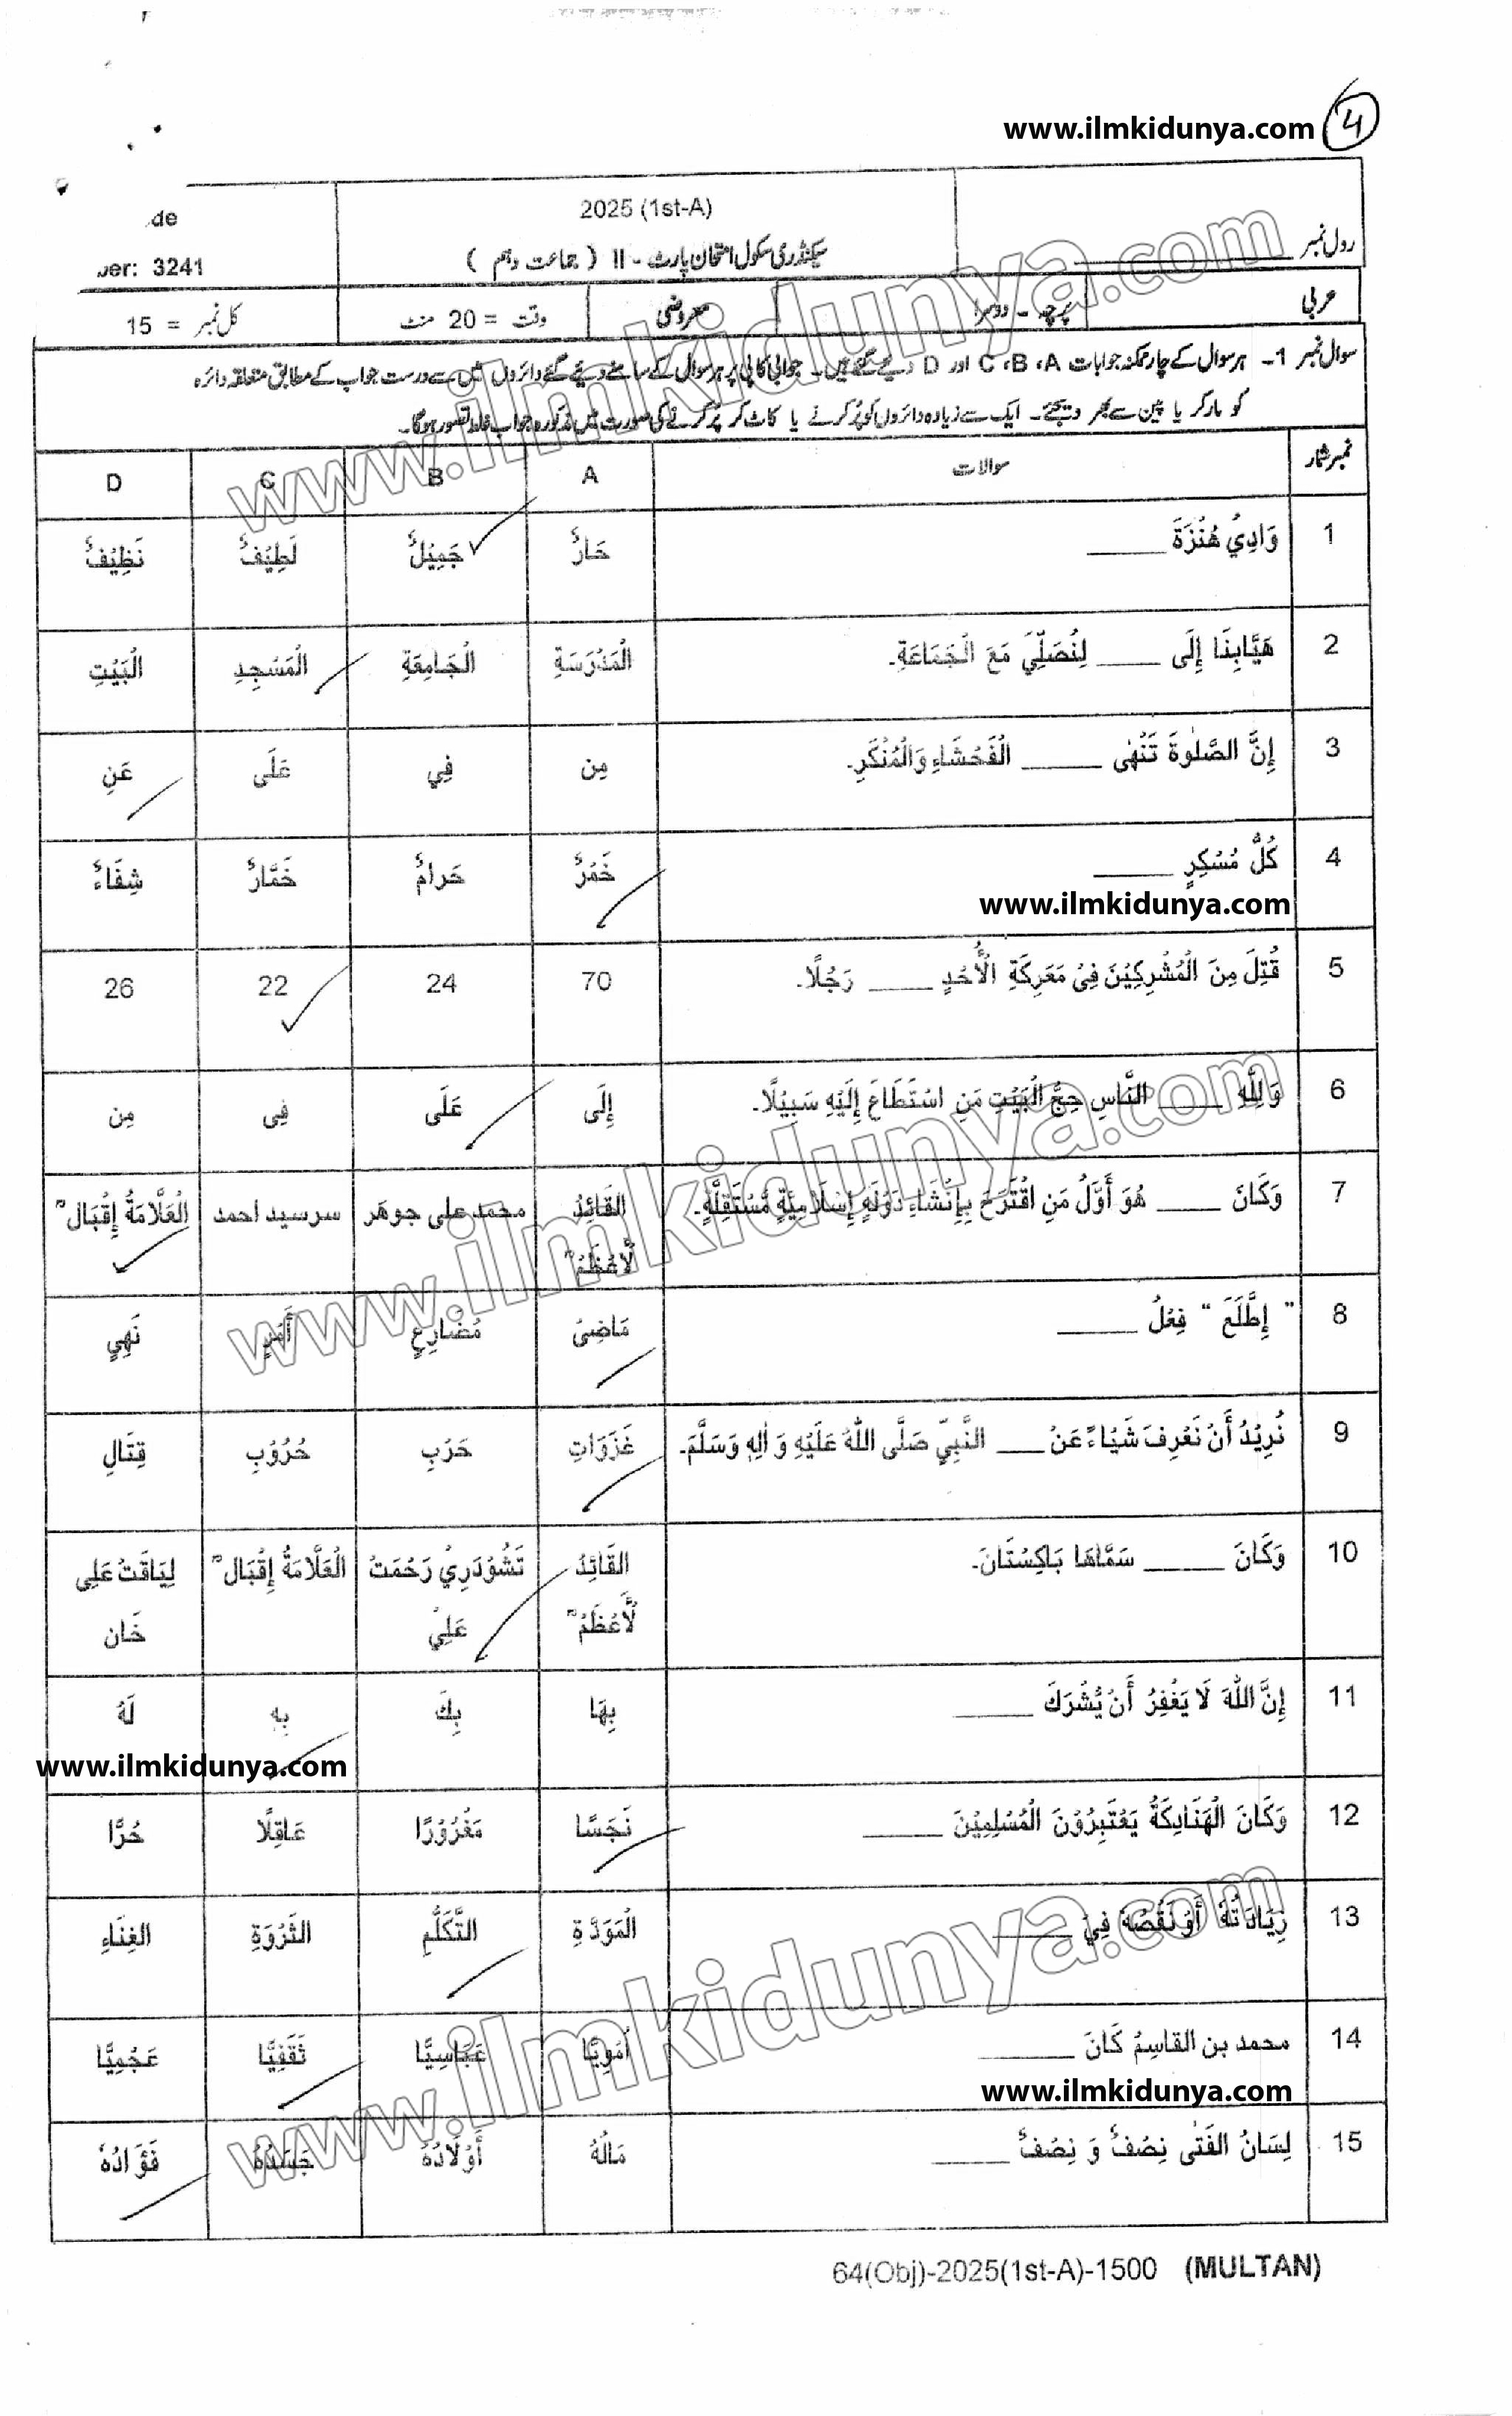 www.ilmkidunya.com 4
رول نمبر 2025 (1st-A) de
سیکنڈری سکول امتحان پارٹ - II ( جماعت دہم ) 3241
عربی پرچہ - دوسرا معروضی وقت = 20 منٹ کل نمبر = 15
سوال نمبر 1- ہر سوال کے چار ممکنہ جوابات A، B، C اور D دیئے گئے ہیں۔ جوابی کاپی پر ہر سوال کے سامنے دیئے گئے دائروں میں سے درست جواب کے مطابق متعلقہ دائرہ
کو مارکر یا پین سے بھر دیجئے۔ ایک سے زیادہ دائروں کو پُر کرنے یا کاٹ کر پُر کرنے کی صورت میں مذکورہ جواب غلط تصور ہوگا۔
نمبر شمار سوالات A B C D
1 وَادِيُ هُنْزَةَ _____ حَارٌ جَمِيْلٌ لَطِيْفٌ نَظِيْفٌ
2 هَيَّابِنَا إِلَى ____ لِنُصَلِّيَ مَعَ الْجَمَاعَةِ۔ الْمَدْرَسَةِ الْجَامِعَةِ الْمَسْجِدِ الْبَيْتِ
3 إِنَّ الصَّلٰوةَ تَنْهٰى _____ الْفَحْشَاءِ وَالْمُنْكَرِ۔ مِن فِي عَلَى عَنِ
4 كُلُّ مُسْكِرٍ _____ خَمْرٌ حَرامٌ خَمَّارٌ شِفَاءٌ
www.ilmkidunya.com
5 قُتِلَ مِنَ الْمُشْرِكِيْنَ فِيْ مَعَرِكَةِ الْأُحُدٍ ____ رَجُلًا۔ 70 24 22 26
6 وَلِلّٰهِ ____ النَّاسِ حِجُّ الْبَيْتِ مَنِ اسْتَطَاعَ إِلَيْهِ سَبِيْلًا۔ إِلَى عَلَى فِي مِن
7 وَكَانَ ____ هُوَ أَوَّلُ مَنِ اقْتَرَحَ بِإِنْشَاءِ دَوْلَةٍ إِسْلَامِيَّةٍ مُّسْتَقِلَّةٍ۔ القَائِدُ محمد علی جوهَر سرسيد احمد الْعَلَّامَةُ إِقْبَال
لْأَعْظَمُ
8 " إِطَّلَعَ " فِعْلُ _____ مَاضِيْ مُضَارِعٍ أَمْرٍ نَهِيٍ
9 نُرِيْدُ أَنْ نَعْرِفَ شَيْاءً عَنْ ___ النَّبِيِّ صَلَّى اللّٰهُ عَلَيْهِ وَ اٰلِهٖ وَسَلَّمَ۔ غَزَوَاتِ حَرْبِ حُرُوْبِ قِتَالِ
10 وَكَانَ _____ سَمَّاهَا بَاكِسْتَانَ۔ القَائِدُ تَشُوْدَرِيْ رَحْمَتْ الْعَلَّامَةُ إِقْبَال لِيَاقَتْ عَلِى
لْأَعْظَمُ عَلِيْ خَان
11 إِنَّ اللّٰهَ لَا يَغْفِرُ أَنْ يُّشْرَكَ _____ بِهَا بِكَ بِهِ لَهُ
www.ilmkidunya.com
12 وَكَانَ الْهَنَادِكَةُ يَعْتَبِرُوْنَ الْمُسْلِمِيْنَ _____ نَجَسًا مَغْرُوْرًا عَاقِلًا حُرًّا
13 زِيَادَتُهُ أَوْ نَقْصُهُ فِيْ _____ الْمَوَدَّةِ التَّكَلُّمِ الثَرْوَةِ الغِنَاءِ
14 محمد بن القاسِمُ كَانَ _____ أُمَوِيًّا عَبَاسِيًّا ثَقَفِيًّا عَجْمِيًّا
www.ilmkidunya.com
15 لِسَانُ الفَتٰى نِصْفٌ وَ نِصْفٌ _____ مَالُهُ أَوْلَادُهُ جَسَدُهُ فَؤَادُهُ
64(Obj)-2025(1st-A)-1500 (MULTAN)
www.ilmkidunya.com
www.ilmkidunya.com
www.ilmkidunya.com